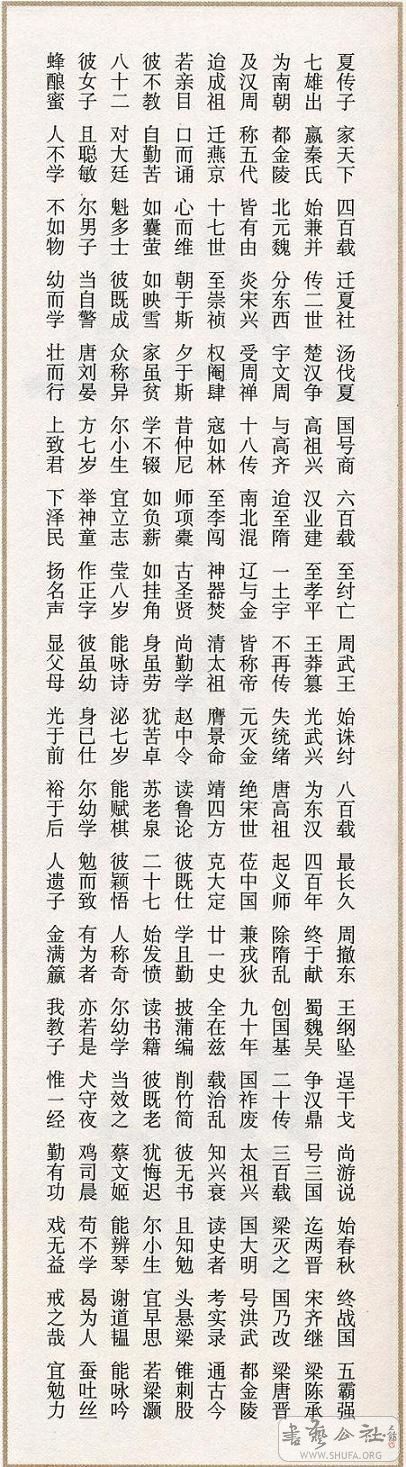 夏传子 家天下 四百载 迁夏社 汤伐夏 国号商 六百载 至纣亡 周武王 始诛纣 八百载 最长久 周撤东 王纲坠 逞干戈 尚游说 始春秋 终战国 五霸强
七雄出 嬴秦氏 始兼并 传二世 楚汉争 高祖兴 汉业建 至孝平 王莽篡 光武兴 为东汉 四百年 终于献 蜀魏吴 争汉鼎 号三国 迄两晋 宋齐继 梁陈承
为南朝 都金陵 北元魏 分东西 宇文周 与高齐 迨至隋 一土宇 不再传 失统绪 唐高祖 起义师 除隋乱 创国基 二十传 三百载 梁灭之 国乃改 梁唐晋
及汉周 称五代 皆有由 炎宋兴 受周禅 十八传 南北混 辽与金 皆称帝 元灭金 绝宋世 莅中国 兼戎狄 九十年 国祚废 太祖兴 国大明 号洪武 都金陵
迨成祖 迁燕京 十七世 至崇祯 权阉肆 寇如林 至李闯 神器焚 清太祖 膺景命 靖四方 克大定 廿一史 全在兹 载治乱 知兴衰 读史者 考实录 通古今
若亲目 口而诵 心而维 朝于斯 夕于斯 昔仲尼 师项橐 古圣贤 尚勤学 赵中令 读鲁论 彼既仕 学且勤 披蒲编 削竹简 彼无书 且知勉 头悬梁 锥刺股
彼不教 自勤苦 如囊萤 如映雪 家虽贫 学不辍 如负薪 如挂角 身虽劳 犹苦卓 苏老泉 二十七 始发愤 读书籍 彼既老 犹悔迟 尔小生 宜早思 若梁灏
八十二 对大廷 魁多士 彼既成 众称异 尔小生 宜立志 莹八岁 能咏诗 泌七岁 能赋棋 彼颖悟 人称奇 尔幼学 当效之 蔡文姬 能辨琴 谢道韫 能咏吟
彼女子 且聪敏 尔男子 当自警 唐刘晏 方七岁 举神童 作正字 彼虽幼 身已仕 尔幼学 勉而致 有为者 亦若是 犬守夜 鸡司晨 苟不学 曷为人 蚕吐丝
蜂酿蜜 人不学 不如物 幼而学 壮而行 上致君 下泽民 扬名声 显父母 光于前 裕于后 人遗子 金满籯 我教子 惟一经 勤有功 戏无益 戒之哉 宜勉力
书艺公社
WWW.SHUFA.ORG